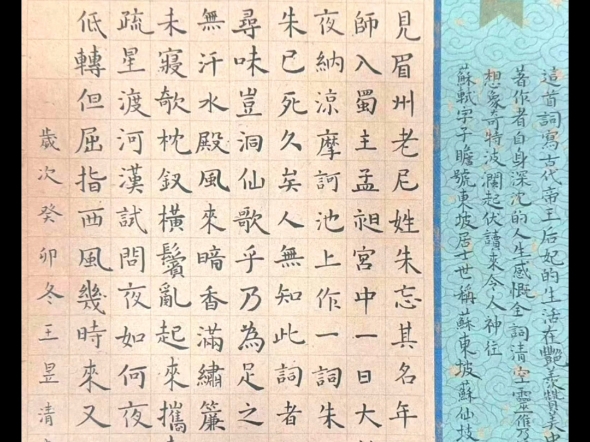 這首詞寫古代帝王后妃的生活在艷羨贊美中
著作者自身深沈的人生感慨全詞清空靈雋
想象奇特波瀾起伏讀來令人神往
蘇軾字子瞻號東坡居士世稱蘇東坡蘇仙
見眉州老尼姓朱忘其名年
師入蜀主孟昶宮中一日大
夜納涼摩訶池上作一詞朱
朱已死久矣人無知此詞者
尋味豈洞仙歌乎乃為足之
無汗水殿風來暗香滿繡簾
未寢欹枕釵橫鬢亂起來攜
疏星渡河漢試問夜如何夜
低轉但屈指西風幾時來又
歲次癸卯冬王昱清